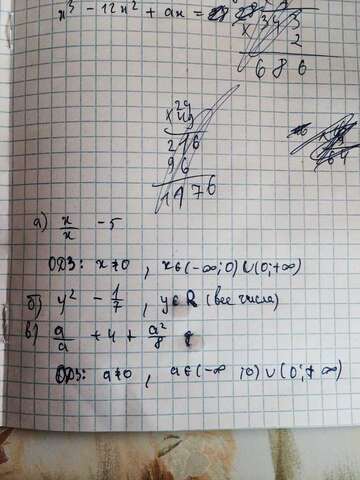 x³ - 12x² + ax =
x 343
2
686
x 24
49
216
96
1176
64
а) x/x - 5
ОДЗ: x≠0 , x∈(-∞;0)∪(0;+∞)
б) y² - 1/7 , y∈R (все числа)
в) a/a + 4 + a²/8
ОДЗ: a≠0 , a∈(-∞;0)∪(0;+∞)